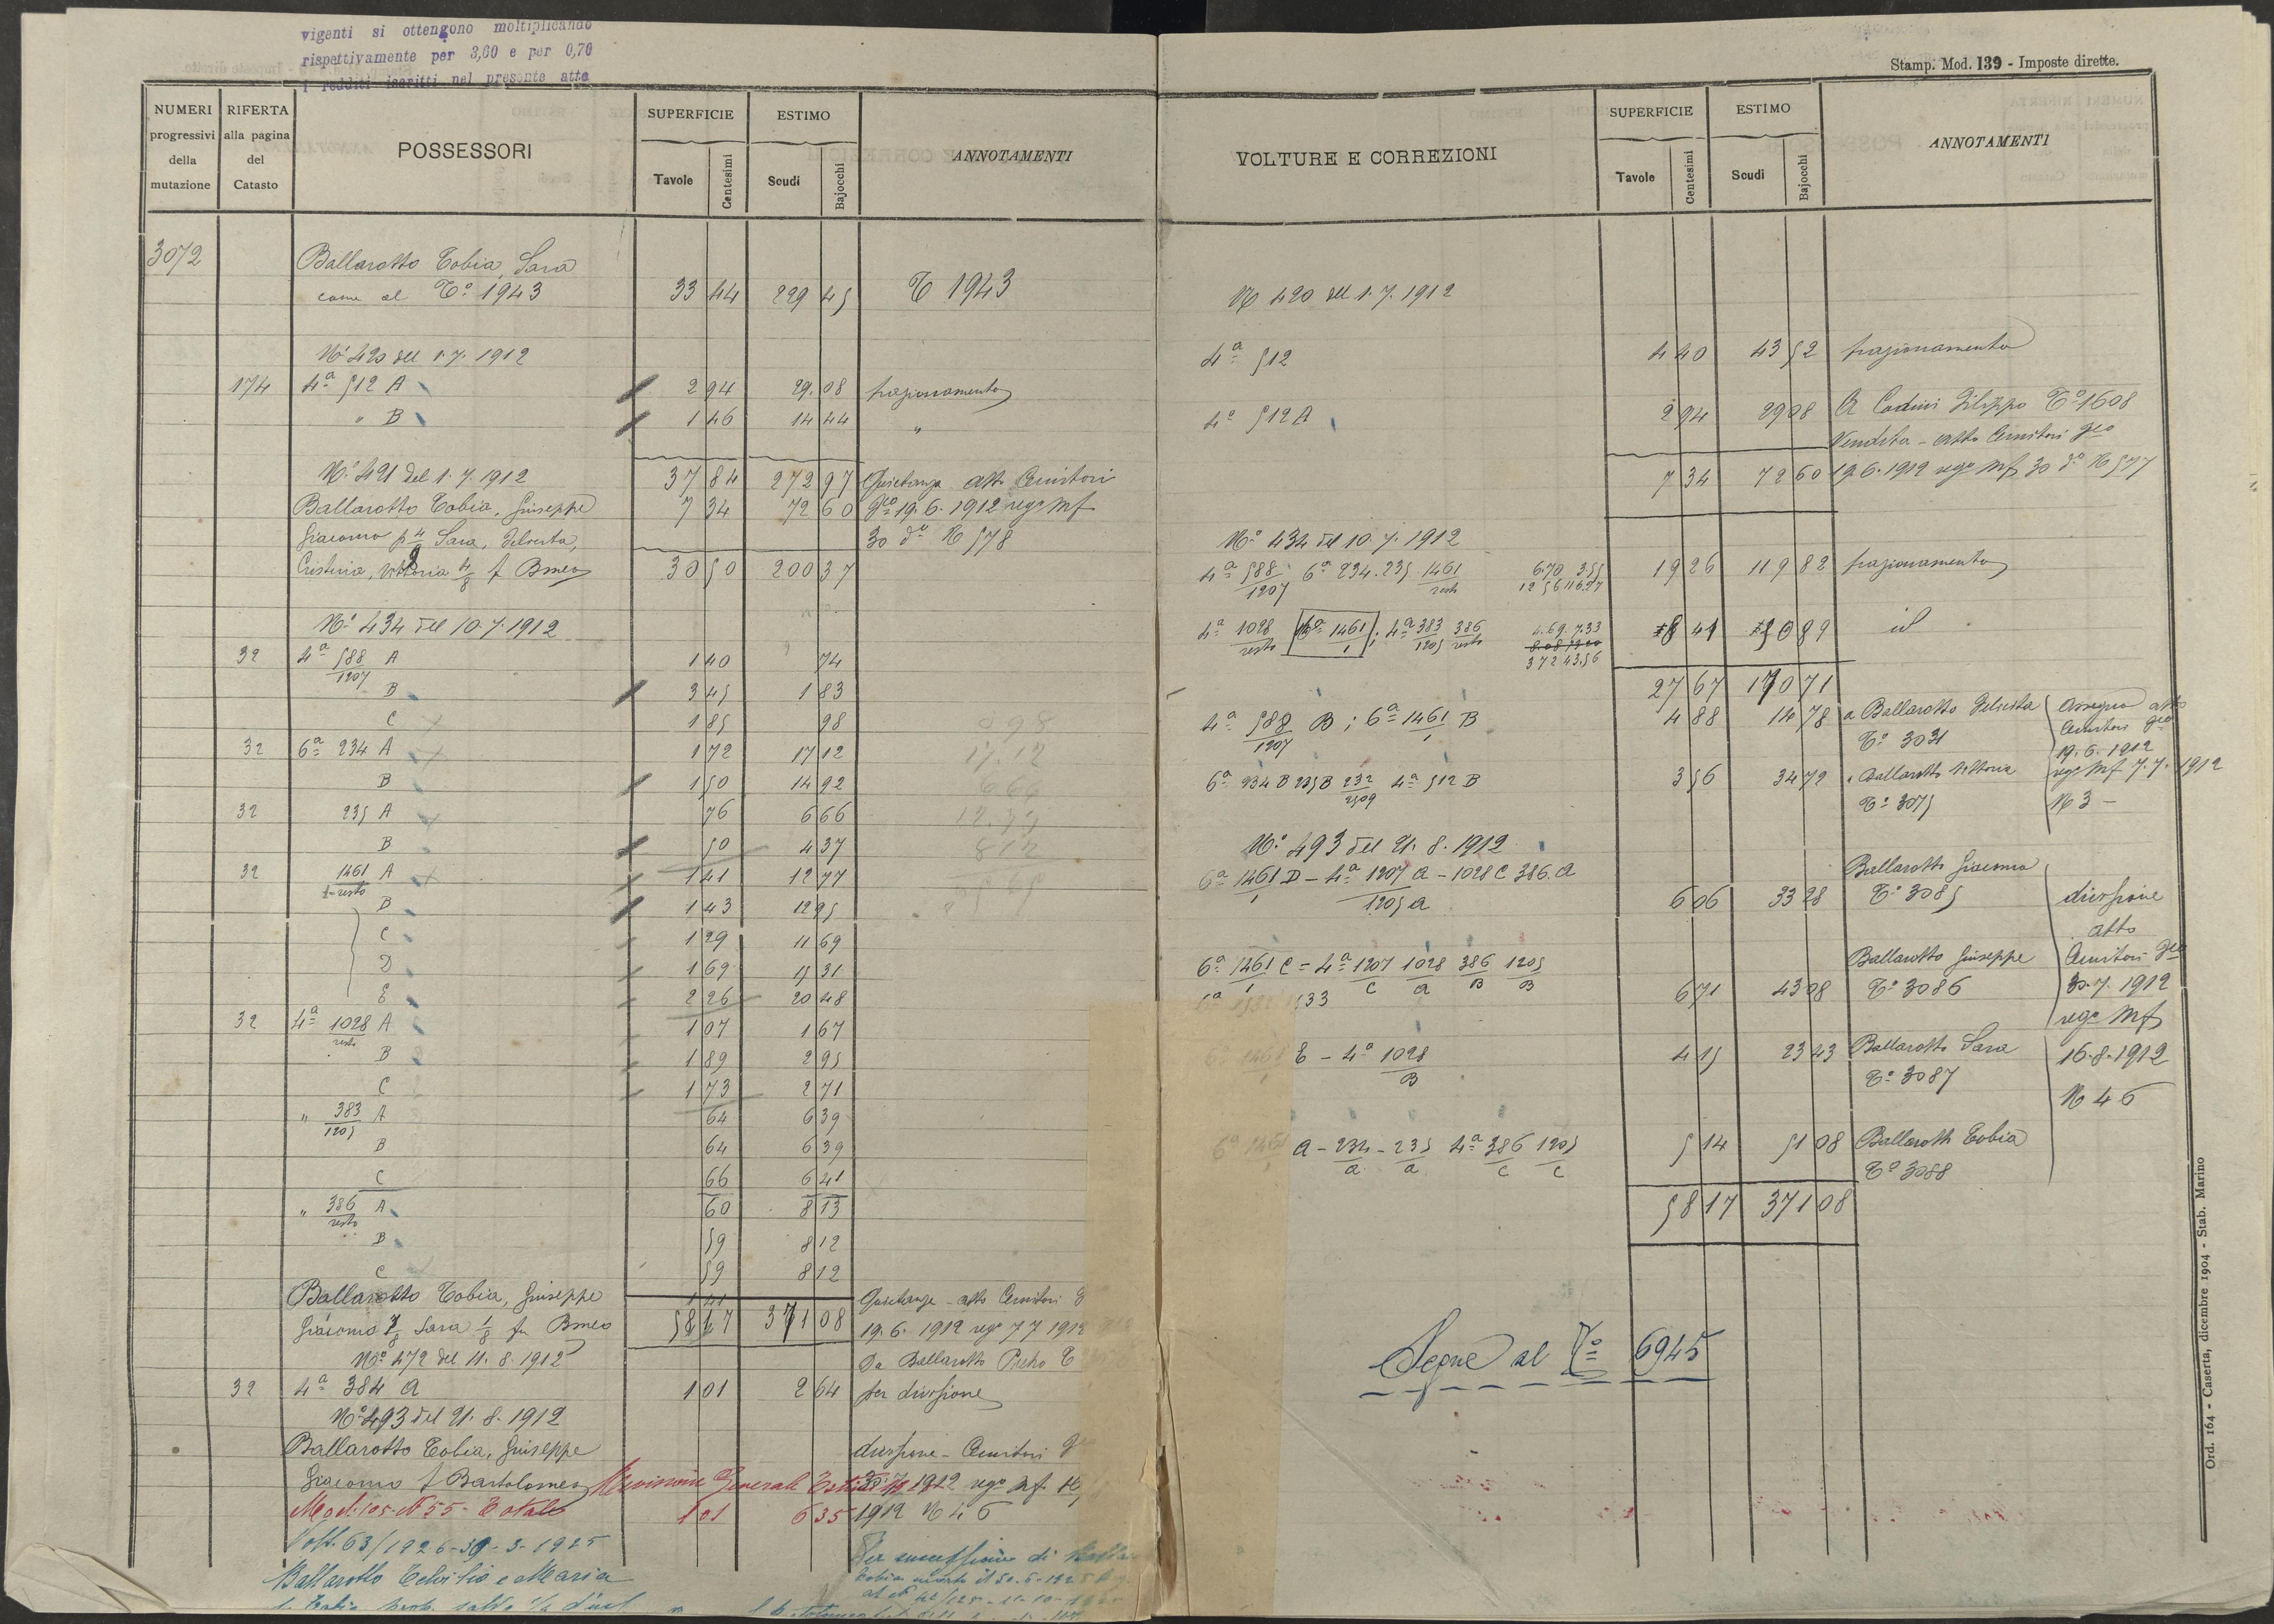 vigenti si ottengono moltiplicando
rispettivamente per 3,60 e per 0,70
i redditi iscritti nel presente atto
NUMERI progressivi della mutazione
RIFERTA alla pagina del Catasto
POSSESSORI
SUPERFICIE
Tavole Centesimi
ESTIMO
Scudi Bajocchi
ANNOTAMENTI
3072 Ballarotto Tobia, Sara
come al T° 1943 33 44 229 45 T 1943
N° 420 del 1.7.1912
174 4ª 512 A 2 94 29.08 frazionamento
" B 1 46 14 44 "
N° 421 del 1.7.1912 37 84 272 97 Quietanza atto
Ballarotto Tobia, Giuseppe 7 34 72 60 19.6.1912 reg° Mf
Giacomo Sara, 30 d° N 578
Cristina, Vittoria 4/8 f Bmeo 30 50 200 37
N° 434 del 10.7.1912
32 4ª 588/1207 A 1 40 74
B 3 45 1 83
C 1 85 98
32 6ª 234 A 1 72 17 12
B 1 50 14 92
32 235 A 76 6 66
B 50 4 37
32 1461 A 1 41 12 77
B 1 43 12 95
C 1 29 11 69
D 1 69 15 31
E 2 26 20 48
32 4ª 1028 resto A 1 07 1 67
B 1 89 2 95
C 1 73 2 71
" 383/1205 A 64 6 39
B 64 6 39
C 66 6 41
" 386 resto A 60 8 13
B 59 8 12
C 59 8 12
Ballarotto Tobia, Giuseppe 1 41 Quietanza - atto
Giacomo 7/8 Sara 1/8 fu Bmeo 58 17 371 08 19.6.1912 reg° 7 7 1912
N° 472 del 11.8.1912 Da Ballarotto Pietro T
32 4ª 384 A 1 01 2 64 per divisione
N° 493 del 21.8.1912
Ballarotto Tobia, Giuseppe divisione
Giacomo f Bartolomeo Revisione Generale 30.7.1912 reg° Mf
Mod. 105 N 55 - Totale 1 01 6 35 1912 N 46
Volt. 63/1926 3-1925 Per successione di
Ballarotto e Maria Tobia morto il
VOLTURE E CORREZIONI
SUPERFICIE
Tavole Centesimi
ESTIMO
Scudi Bajocchi
ANNOTAMENTI
Stamp. Mod. 139 - Imposte dirette.
N° 420 del 1.7.1912
4ª 512 4 40 43 52 frazionamento
4ª 512 A 2 94 29 08 A Filippo T° 1608
Vendita - atto
7 34 72 60 19.6.1912 reg° Mf 30 d° N 577
N° 434 del 10.7.1912
4ª 588/1207 6ª 234.235 1461 resto 6.70 3.55 19 26 119 82 frazionamento
12 56 116.27
4ª 1028 resto 6ª 1461/1 ; 4ª 383/1205 386 resto 4.69 7.33 8 41 50 89 id
3 72 43.56
27 67 170 71
4ª 588/1207 B ; 6ª 1461/1 B 4 88 14 78 a Ballarotto Assegno atto
T° 3031
19.6.1912
6ª 234 B 235 B 4ª 512 B 3 56 34 72 Ballarotto Vittoria reg° Mf 7.7.1912
T° 3075 N 3 -
N° 493 del 21.8.1912
6ª 1461/1 D - 4ª 1207 A - 1028 C 386. A Ballarotto Giacomo
1205 A 6 06 33 28 T° 3085 divisione
atto
6ª 1461/1 C = 4ª 1207/C 1028/A 386/B 1205/B Ballarotto Giuseppe
6 71 43 08 T° 3086 30.7.1912
reg° Mf
6ª 1461 E - 4ª 1028/B 4 15 23 43 Ballarotto Sara 16.8.1912
T° 3087 N 46
6ª 1461 A - 234/A - 235/A 4ª 386/C 1205/C 5 14 51 08 Ballarotto Tobia
T° 3088
58 17 371 08
Segue al N° 6945
Ord. 164 - Caserta, dicembre 1904 - Stab. Marino